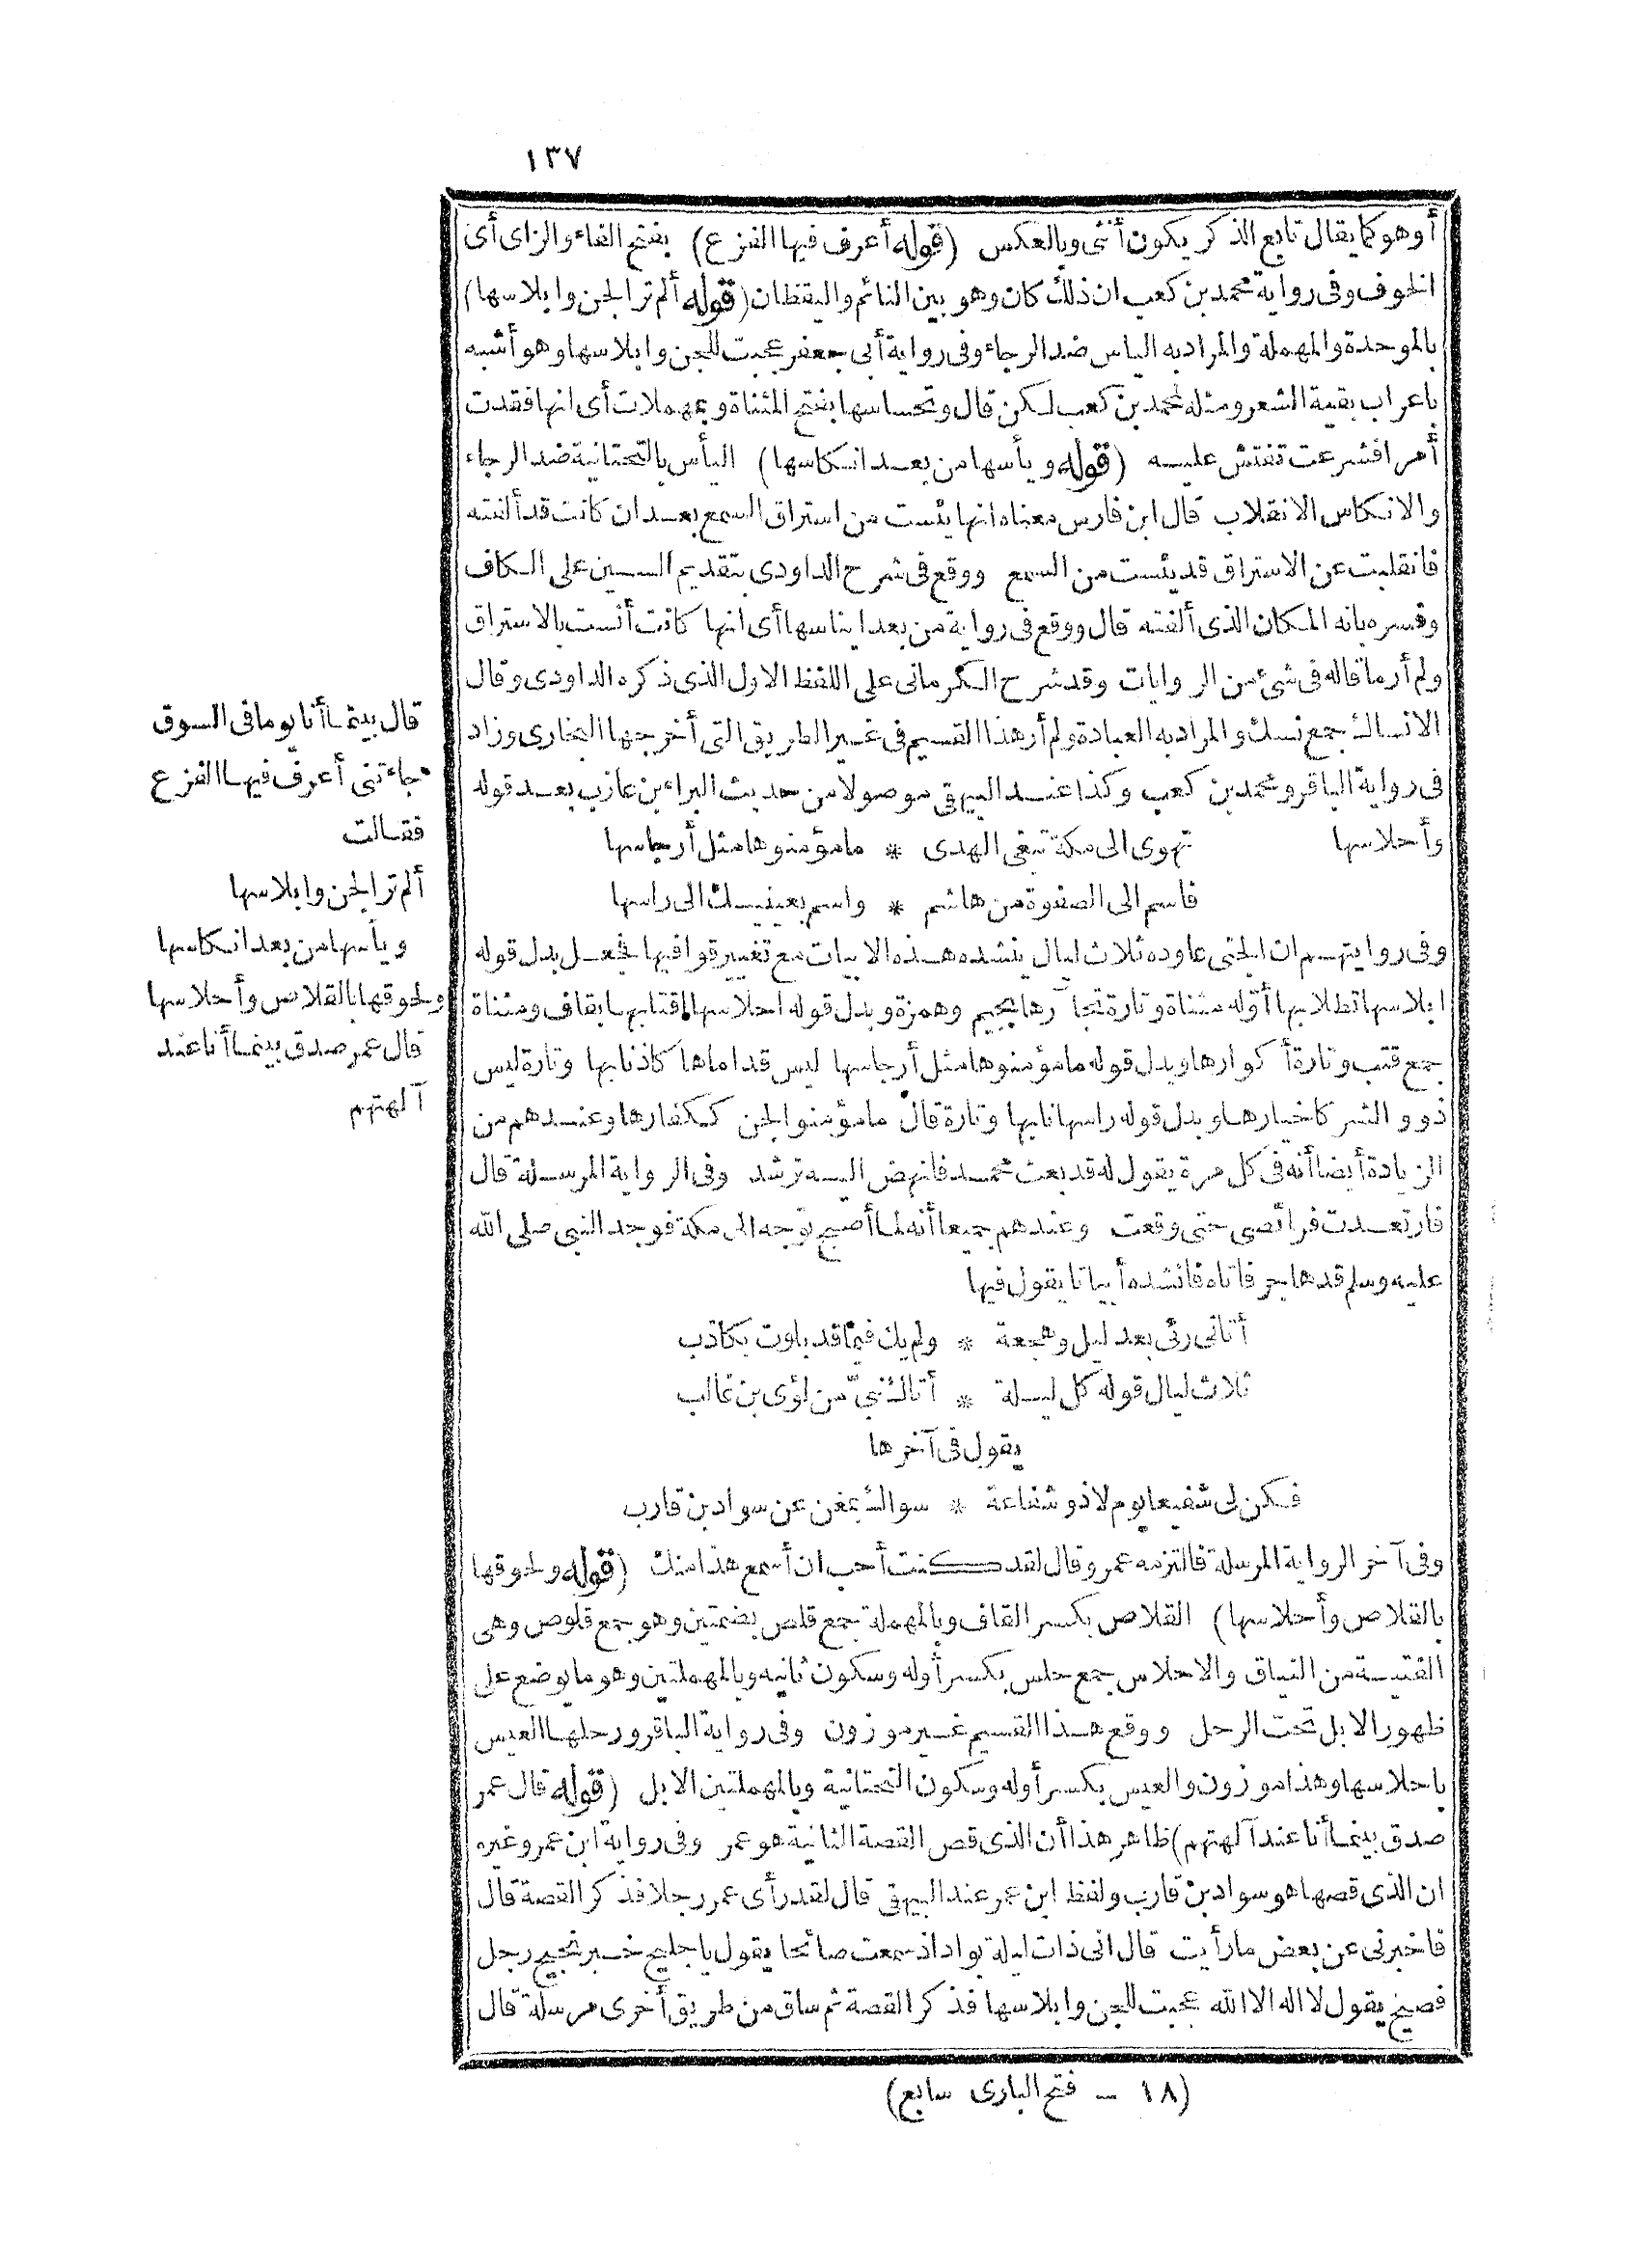 ١٣٧
أوهو كما يقال تابع الذكر يكون أنثى وبالعكس (قوله أعرف فيها الفزع) بفتح الفاء والزاى أى
الخوف وفى رواية محمد بن كعب ان ذلك كان وهو بين النائم واليقظان (قوله ألم تر الجن وابلاسها)
بالموحدة والمهملة والمراد به الياس ضد الرجاء وفى رواية أبى جعفر عجبت للجن وابلاسها وهو أشبه
باعراب بقية الشعر ومثله لمحمد بن كعب لكن قال وتحساسها بفتح المثناة وبمهملات أى انها فقدت
أمرا فشرعت تفتش عليه (قوله ويأسها من بعد انكاسها) اليأس بالتحتانية ضد الرجاء
والانكاس الانقلاب قال ابن فارس معناه انها يئست من استراق السمع بعد ان كانت قد ألفته
فانقلبت عن الاستراق قد يئست من السمع ووقع فى شرح الداودى بتقديم السين على الكاف
وفسره بانه المكان الذى ألفته قال ووقع فى رواية من بعد ايناسها أى انها كانت أنست بالاستراق
ولم أر ما قاله فى شئ من الروايات وقد شرح الكرمانى على اللفظ الاول الذى ذكره الداودى وقال
الانساك جمع نسك والمراد به العبادة ولم أر هذا القسيم فى غير الطريق التى أخرجها البخارى وزاد
فى رواية الباقر ومحمد بن كعب وكذا عند البيهقى موصولا من حديث البراء بن عازب بعد قوله
وأحلاسها تهوى الى مكة تبغى الهدى * ما مؤمنوها مثل أرجاسها
فاسم الى الصفوة من هاشم * واسم بعينيك الى راسها
وفى روايتهم ان الجنى عاوده ثلاث ليال ينشده هذه الابيات مع تغيير قوافيها فجعل بدل قوله
ابلاسها تطلابها أوّله مثناة وتارة تجآرها بجيم وهمزة وبدل قوله احلاسها اقتابها بقاف ومثناة
جمع قتب وتارة أكوارها وبدل قوله ما مؤمنوها مثل أرجاسها ليس قداماها كاذنابها وتارة ليس
ذوو الشر كاخيارها وبدل قوله راسها نابها وتارة قال ما مؤمنو الجن ككفارها وعندهم من
الزيادة أيضا أنه فى كل مرة يقول له قد بعث محمد فانهض اليه ترشد وفى الرواية المرسلة قال
فارتعدت فرائصى حتى وقعت وعندهم جميعا أنه لما أصبح توجه الى مكة فوجد النبى صلى الله
عليه وسلم قد هاجر فاتاه فانشده أبياتا يقول فيها
أتانى رئى بعد ليل وهجعة * ولم يك فيما قد بلوت بكاذب
ثلاث ليال قوله كل ليلة * أتاك نبىّ من لؤى بن غالب
يقول فى آخرها
فكن لى شفيعا يوم لا ذو شفاعة * سواك بمغن عن سواد بن قارب
وفى آخر الرواية المرسلة فالتزمه عمر وقال لقد كنت أحب ان أسمع هذا منك (قوله ولحوقها
بالقلاص وأحلاسها) القلاص بكسر القاف وبالمهملة جمع قلص بضمتين وهو جمع قلوص وهى
الفتية من النياق والاحلاس جمع حلس بكسر أوله وسكون ثانيه وبالمهملتين وهو ما يوضع على
ظهور الابل تحت الرحل ووقع هذا القسيم غير موزون وفى رواية الباقر ورحلها العيس
باحلاسها وهذا موزون والعيس بكسر أوله وسكون التحتانية وبالمهملتين الابل (قوله قال عمر
صدق بينما أنا عند آلهتهم) ظاهر هذا أن الذى قص القصة الثانية هو عمر وفى رواية ابن عمر وغيره
ان الذى قصها هو سواد بن قارب ولفظ ابن عمر عند البيهقى قال لقد رأى عمر رجلا فذكر القصة قال
فاخبرنى عن بعض ما رأيت قال انى ذات ليلة بواد اذ سمعت صائحا يقول يا جليح خبر نجيح رجل
فصيح يقول لا اله الا الله عجبت للجن وابلاسها فذكر القصة ثم ساق من طريق أخرى مرسلة قال
قال بينما أنا يوما فى السوق
جاءتنى أعرف فيها الفزع
فقالت
ألم تر الجن وابلاسها
ويأسها من بعد انكاسها
ولحوقها بالقلاص وأحلاسها
قال عمر صدق بينما أنا عند
آلهتهم
(١٨ – فتح البارى سابع)